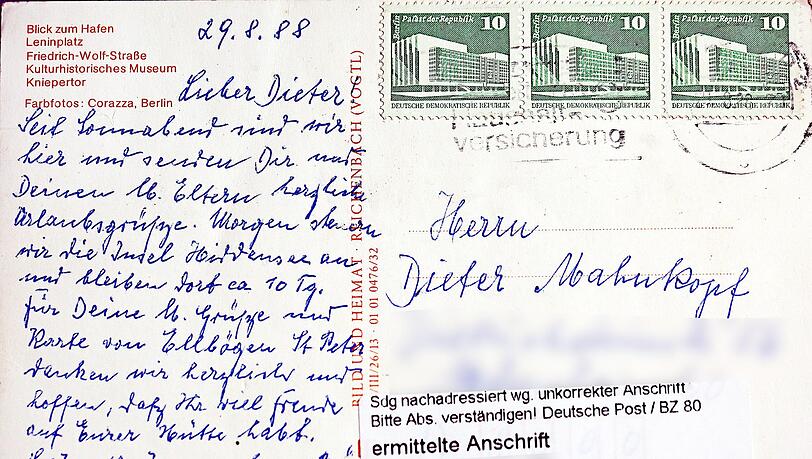 Blick zum Hafen
Leninplatz
Friedrich-Wolf-Straße
Kulturhistorisches Museum
Kniepertor
Farbfotos: Corazza, Berlin
29.8.88
Lieber Dieter
Seit Sonnabend sind wir
hier und senden Dir und
Deinen lb. Eltern herzliche
Urlaubsgrüße. Morgen steuern
wir die Insel Hiddensee an
und bleiben dort ca 10 Tg.
Für Deine lb. Grüße und
Karte von Ellbögen St Peter
danken wir herzlich und
hoffen, daß Ihr viel Freude
auf Eurer Hütte habt.
BILD UND HEIMAT · REICHENBACH (VOGTL)
/III/26/13 · 01 01 0476/32
Berlin Palast der Republik 10
DEUTSCHE DEMOKRATISCHE REPUBLIK
Berlin Palast der Republik 10
DEUTSCHE DEMOKRATISCHE REPUBLIK
Berlin Palast der Republik 10
DEUTSCHE DEMOKRATISCHE REPUBLIK
versicherung
Herrn
Dieter Mahnkopf
Sdg nachadressiert wg. unkorrekter Anschrift
Bitte Abs. verständigen! Deutsche Post / BZ 80
ermittelte Anschrift